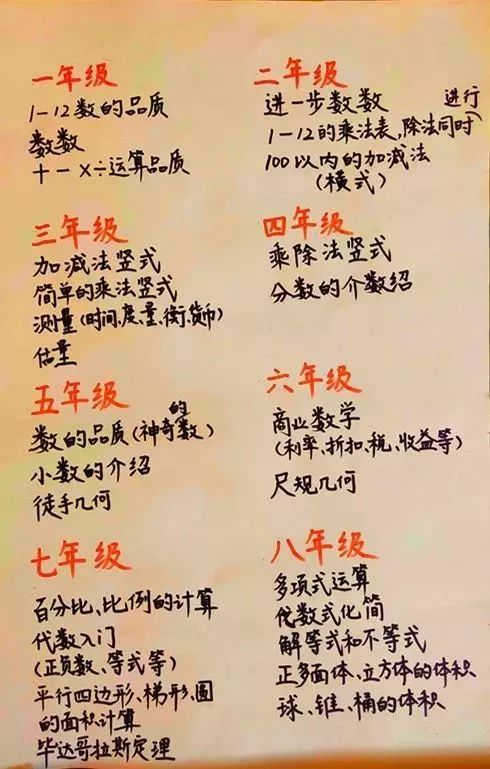 一年级
1-12数的品质
数数
十一 X÷运算品质
二年级
进一步数数 进行
1-12的乘法表,除法同时
100以内的加减法
(横式)
三年级
加减法竖式
简单的乘法竖式
测量(时间、度、量、衡、货币)
估量
四年级
乘除法竖式
分数的介数绍
五年级
的
数的品质(神奇数)
小数的介绍
徒手几何
六年级
商业数学
(利率、折扣、税、收益等)
尺规几何
七年级
百分比、比例的计算
代数入门
(正负数、等式等)
平行四边形、梯形、圆
的面积计算
毕达哥拉斯定理
八年级
多项式运算
代数式化简
解等式和不等式
正多面体、立方体的体积
球、锥、桶的体积